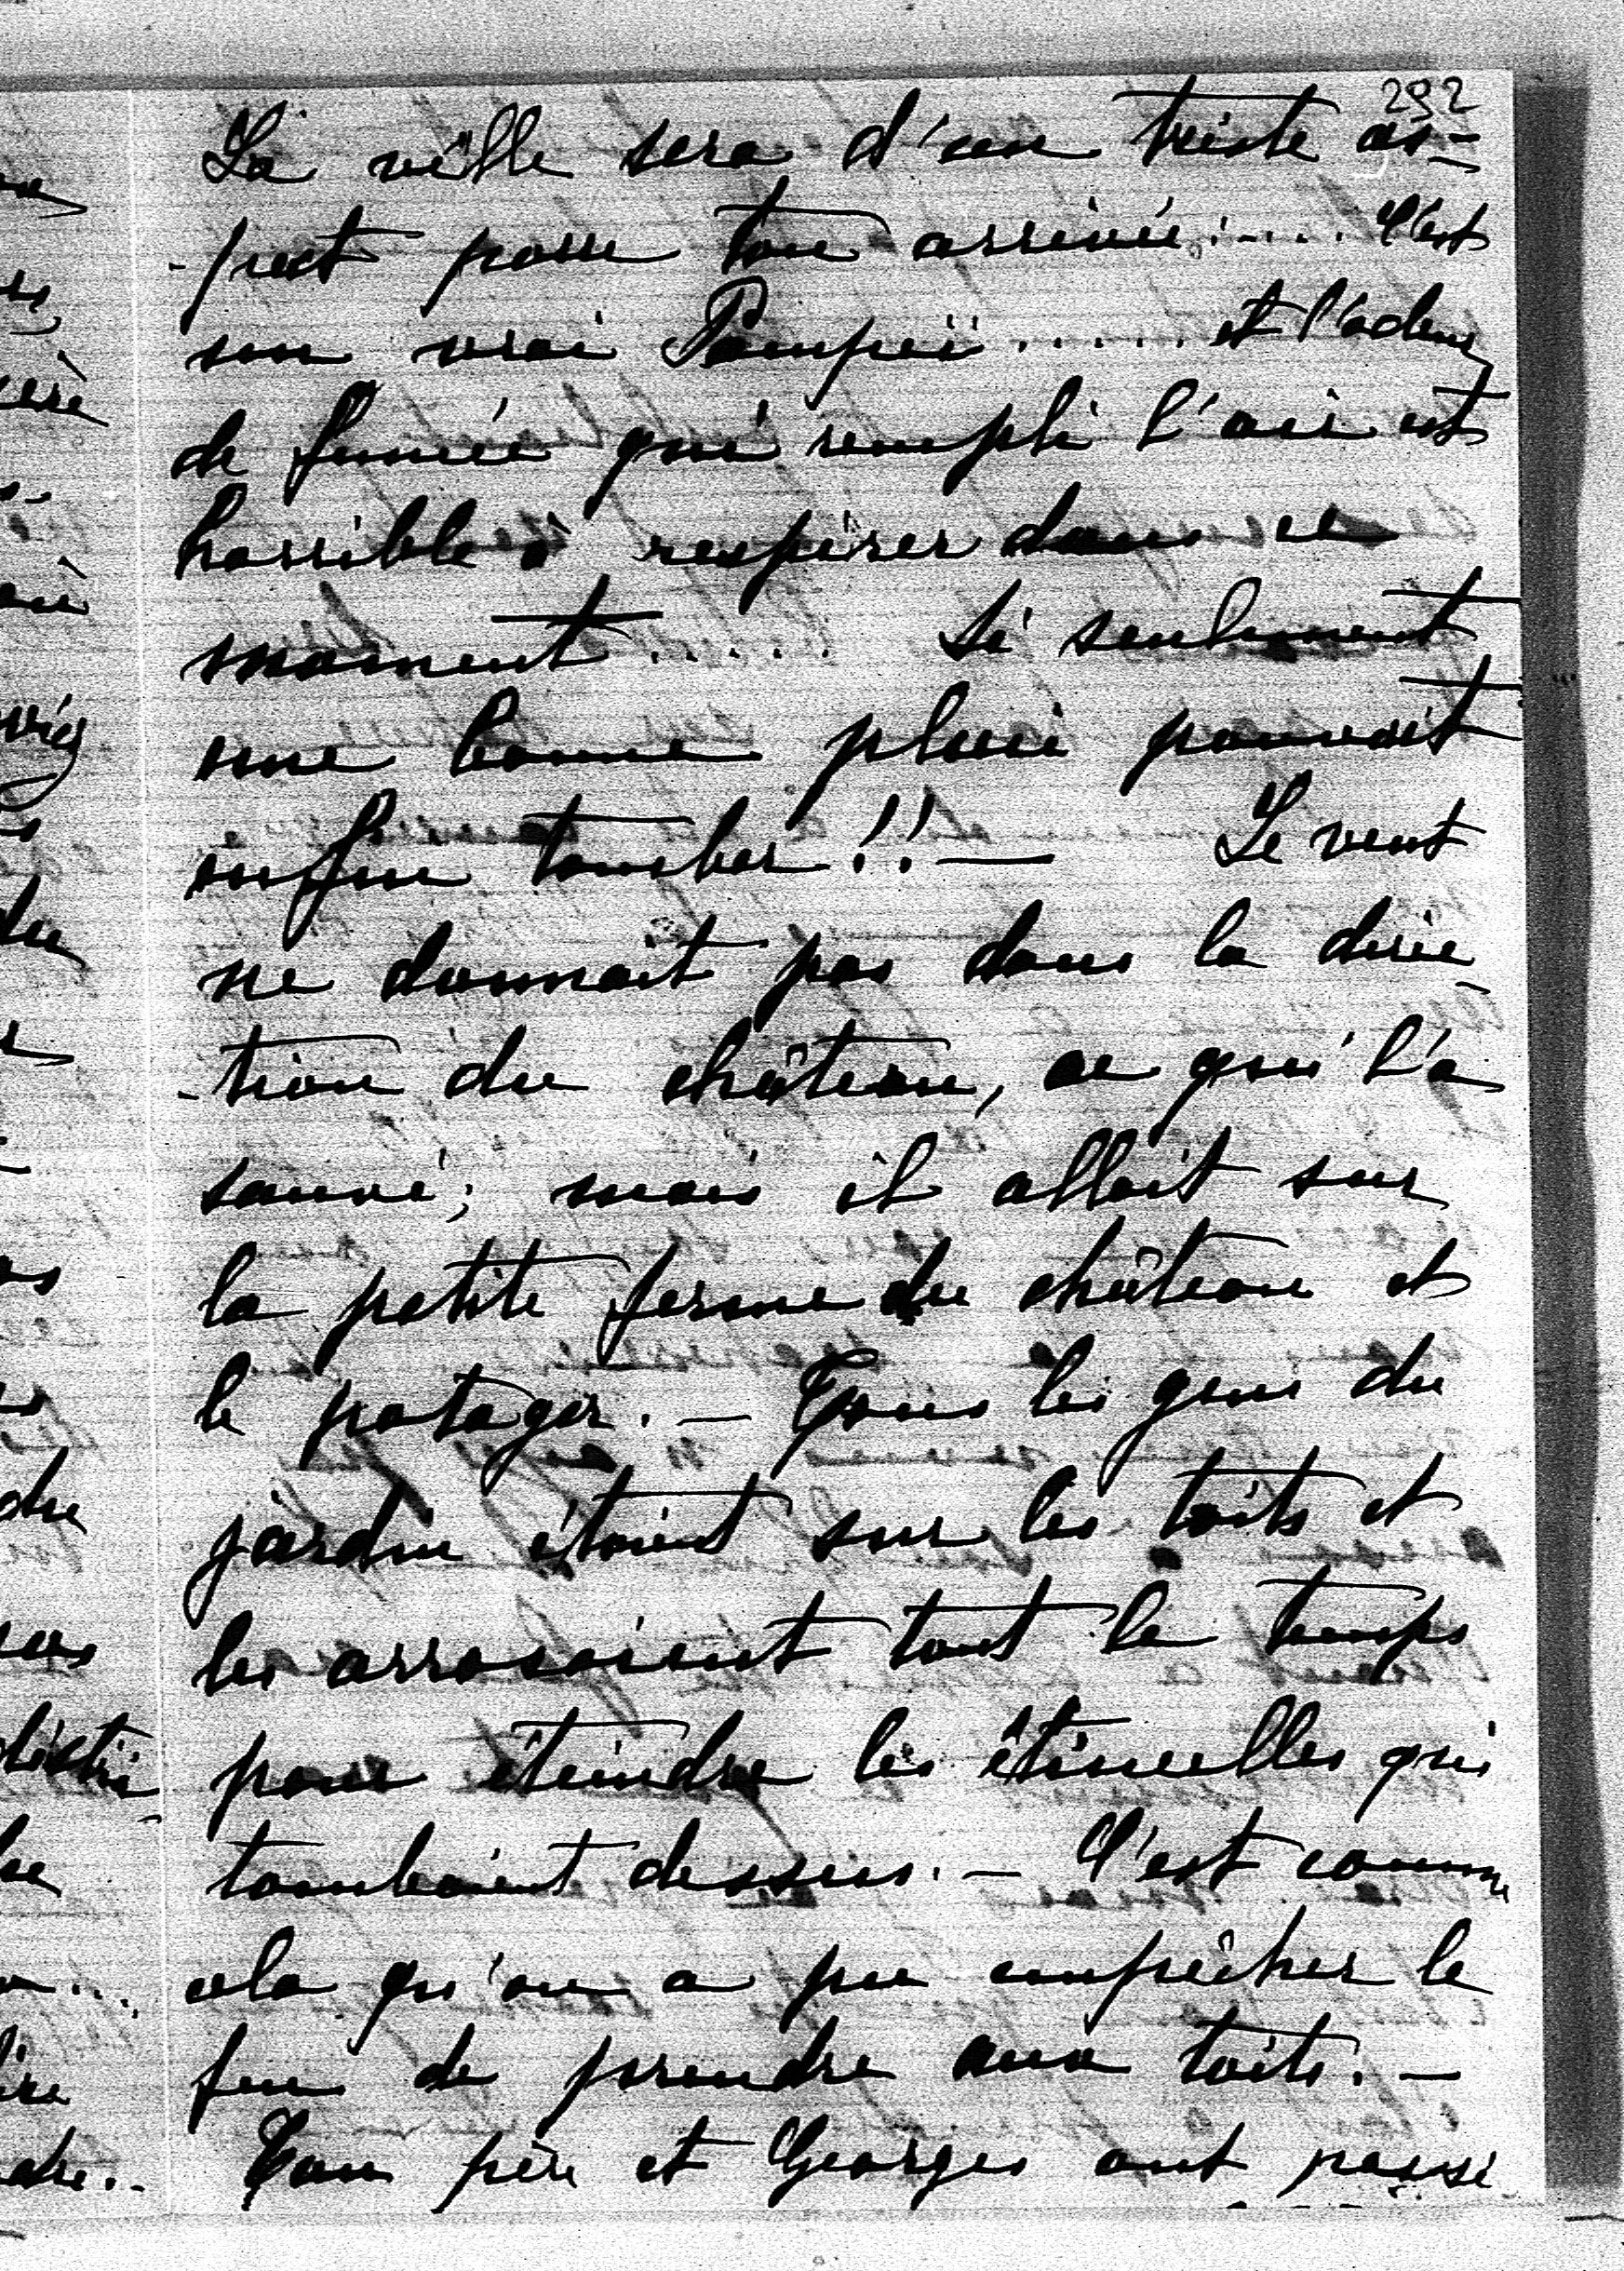 292
La ville sera d'un triste as-
-pect pour ton arrivée..... C'est
un vrai Pompeï ...... et l'odeur
de fumée qui rempli l'air est
horrible à respirer dans ce
moment ..... Si seulement
une bonne pluie pouvait
enfin tomber!! — Le vent
ne donnait pas dans la direc-
-tion du château, ce qui l'a
sauvé; mais il allait sur
la petite ferme du château et
le potager. — Tous les gens du
jardin étaient sur les toits et
les arrosaient tout le temps
pour éteindre les étincelles qui
tombaient dessus. — C'est comme
cela qu'on a pu empêcher le
feu de prendre aux toits. —
Ton père et Georges ont passé